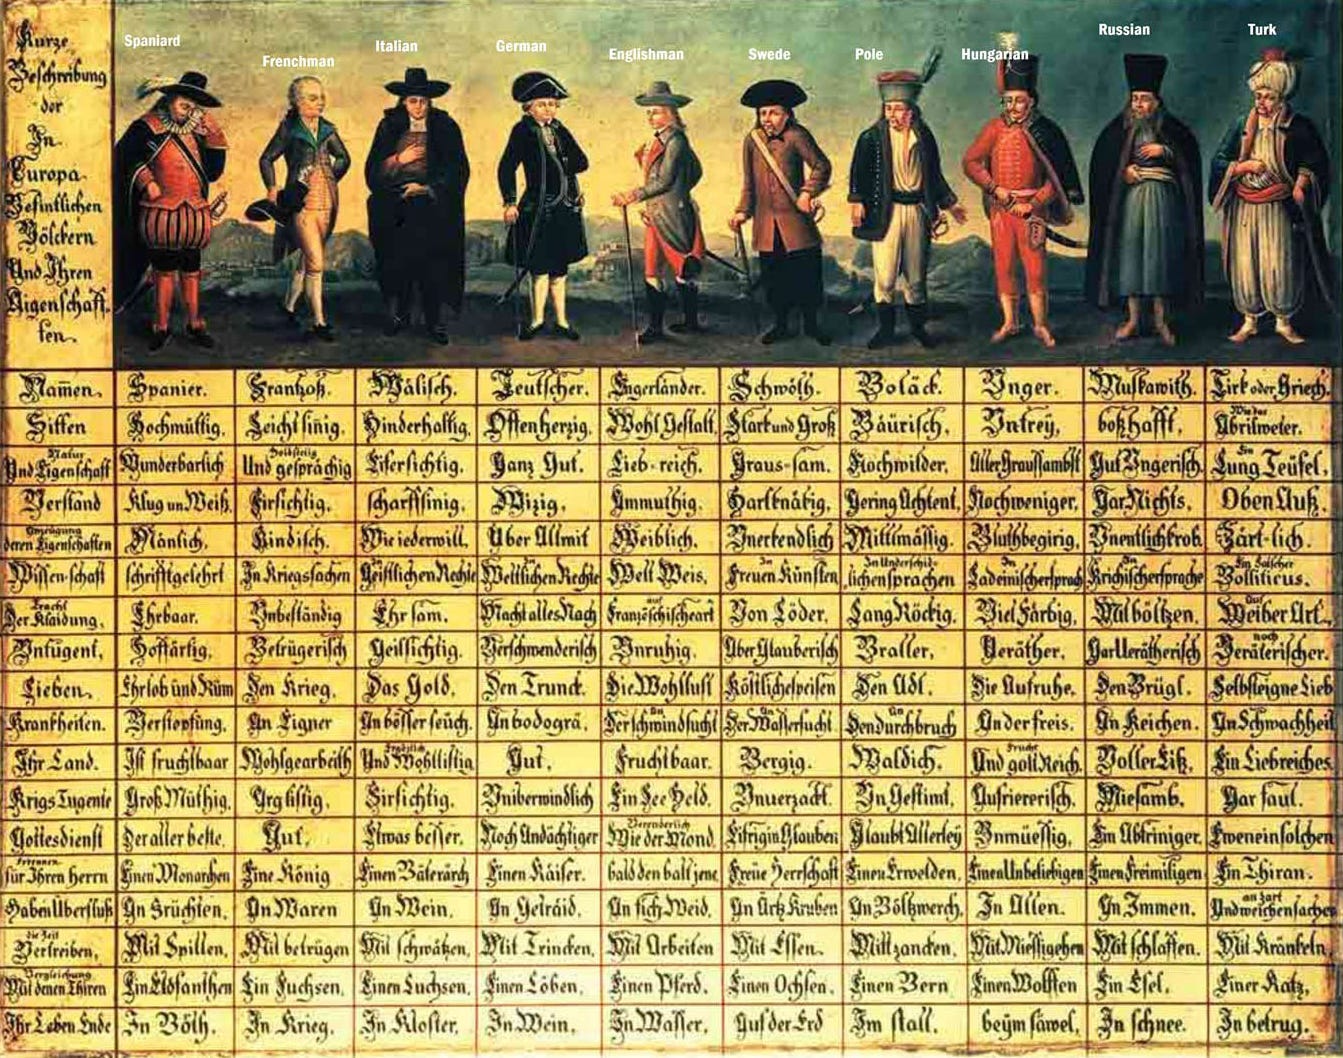 Kurze
Beschreibung
der
In
Europa
Befintlichen
Völckern
Und Ihren
Aigenschaff-
ten.
Spaniard
Frenchman
Italian
German
Englishman
Swede
Pole
Hungarian
Russian
Turk
Namen. Spanier. Frantzoß. Wälisch. Teutscher. Engerländer. Schwöth. Boläck. Unger. Muskawith. Tirk oder Griech.
Sitten Hochmüttig. Leicht sinig. Hinderhaltig. Offenherzig. Wohl Gestalt. Stark und Groß Bäurisch. Untrey. boßhafft. Wie das Abrilweter.
Und Natur Eigenschaft Wunderbarlich Holdseelig Und gesprächig Eifersichtig. Ganz Gut. Lieb-reich. Graus-sam. Nochwilder. Aller Graussambst Gut Ungerisch. Ein Lung Teüfel.
Verständ Klug un Weiß. Firsichtig. scharffsinig. Wizig. Ammuthig. Hartknäbig. Gering Achtent. Nochweniger. Gar Nichts. Oben Auß.
Anzeigung deren Eigenschaften Mänlich. Kindisch. Wie iederwill. Über Allmit Weiblich. Unerkendlich Mittlmässig. Bluthbegirig. Unentlichkrob. Zärt-lich.
Wissenschaft schrifftgelehrt In Kriegssachen In Geistlichen Rechte In Weltlichen Rechte Welt Weis. In Freuen Künsten In Underschidlichen sprachen In Ladeinischersprach In Krichischersprache Ein Falscher Bolliticus.
Tracht Der Klaidung. Ehrbaar. Unbeständig Ehrsam. Macht alles Nach auf Französchischeart Von Löder. Lang Röckig. Viel Färbig. Mit böltzen. Auf Weiber Art.
Untugent. Hoffärtig. Betrügerisch Geillsichtig. Verschwenderisch Unruhig. Über Glauberisch Braller. Veräther. Gar Verätherisch noch Verälerischer.
Lieben. Ehrlob und Rüm Den Krieg. Das Gold. Den Trunck. Die Wohllust Köstlichespeisen Den Adl. Die Aufruhe. Den Brügl. Selbsteigne Lieb
Krankheiten. Verstopfung. An Eigner An bösser seüch. An bodogrä. An Der schwindsucht An Der Wassersucht An Den durchbruch An der freis. An Keichen. An Schwachheit
Ihr Land. Ist fruchtbaar Wohlgearbeith Ergözlich Und Wohllistig Gut. Fruchtbaar. Bergig. Waldich. Frucht Und golt Reich. Voller Eiß. Ein Liebreiches.
Krigs Tugente Groß Müthig. Arglistig. Firsichtig. Uniberwindlich Ein See Held. Unuerzackt. Un Gestimt. Aufriererisch. Miesamb. Gar faul.
Gottesdienst Der aller beste. Gut. Etwas besser. Noch Andächtiger Verenderlich Wie der Mond. Eifrig in Glauben Glaubt Allerley Unmüessig. Ein Abtriniger. Eweneinsolchen
Erkennen für Ihren herrn Einen Monarchen Eine König Einen Bäterärch Einen Kaiser. bald den balt jene Freüe Herrschaft Einen Erwelden. Einen Unbeliebigen Einen Freimiligen Ein Thiran.
Haben Überfluß An Früchten. An Waren An Wein. An Geträid. An fich Weid. An Ärtz Kruben An Böltzwerch. In Allen. An Immen. an zart Und weichen sachen
die Zeit Vertreiben. Mit Spillen. Mit betrügen Mit schwätzen. Mit Trincken. Mit Arbeiten Mit Essen. Mit zancken. Mit Miessigehen Mit schlaffen. Mit Kränkeln
Vergleichung Mit denen Thiren Ein Elofanthen Ein Fuchsen. Einen Luchsen. Einen Löben. Einen Pferd. Einen Ochsen. Einen Bern Einen Wolffen Ein Esel. Einer Katz.
Ihr Leben Ende In Böth. In Krieg. In Kloster. In Wein. In Wasser. Auf der Erd Im stall. beym säwel. In schnee. In betrug.